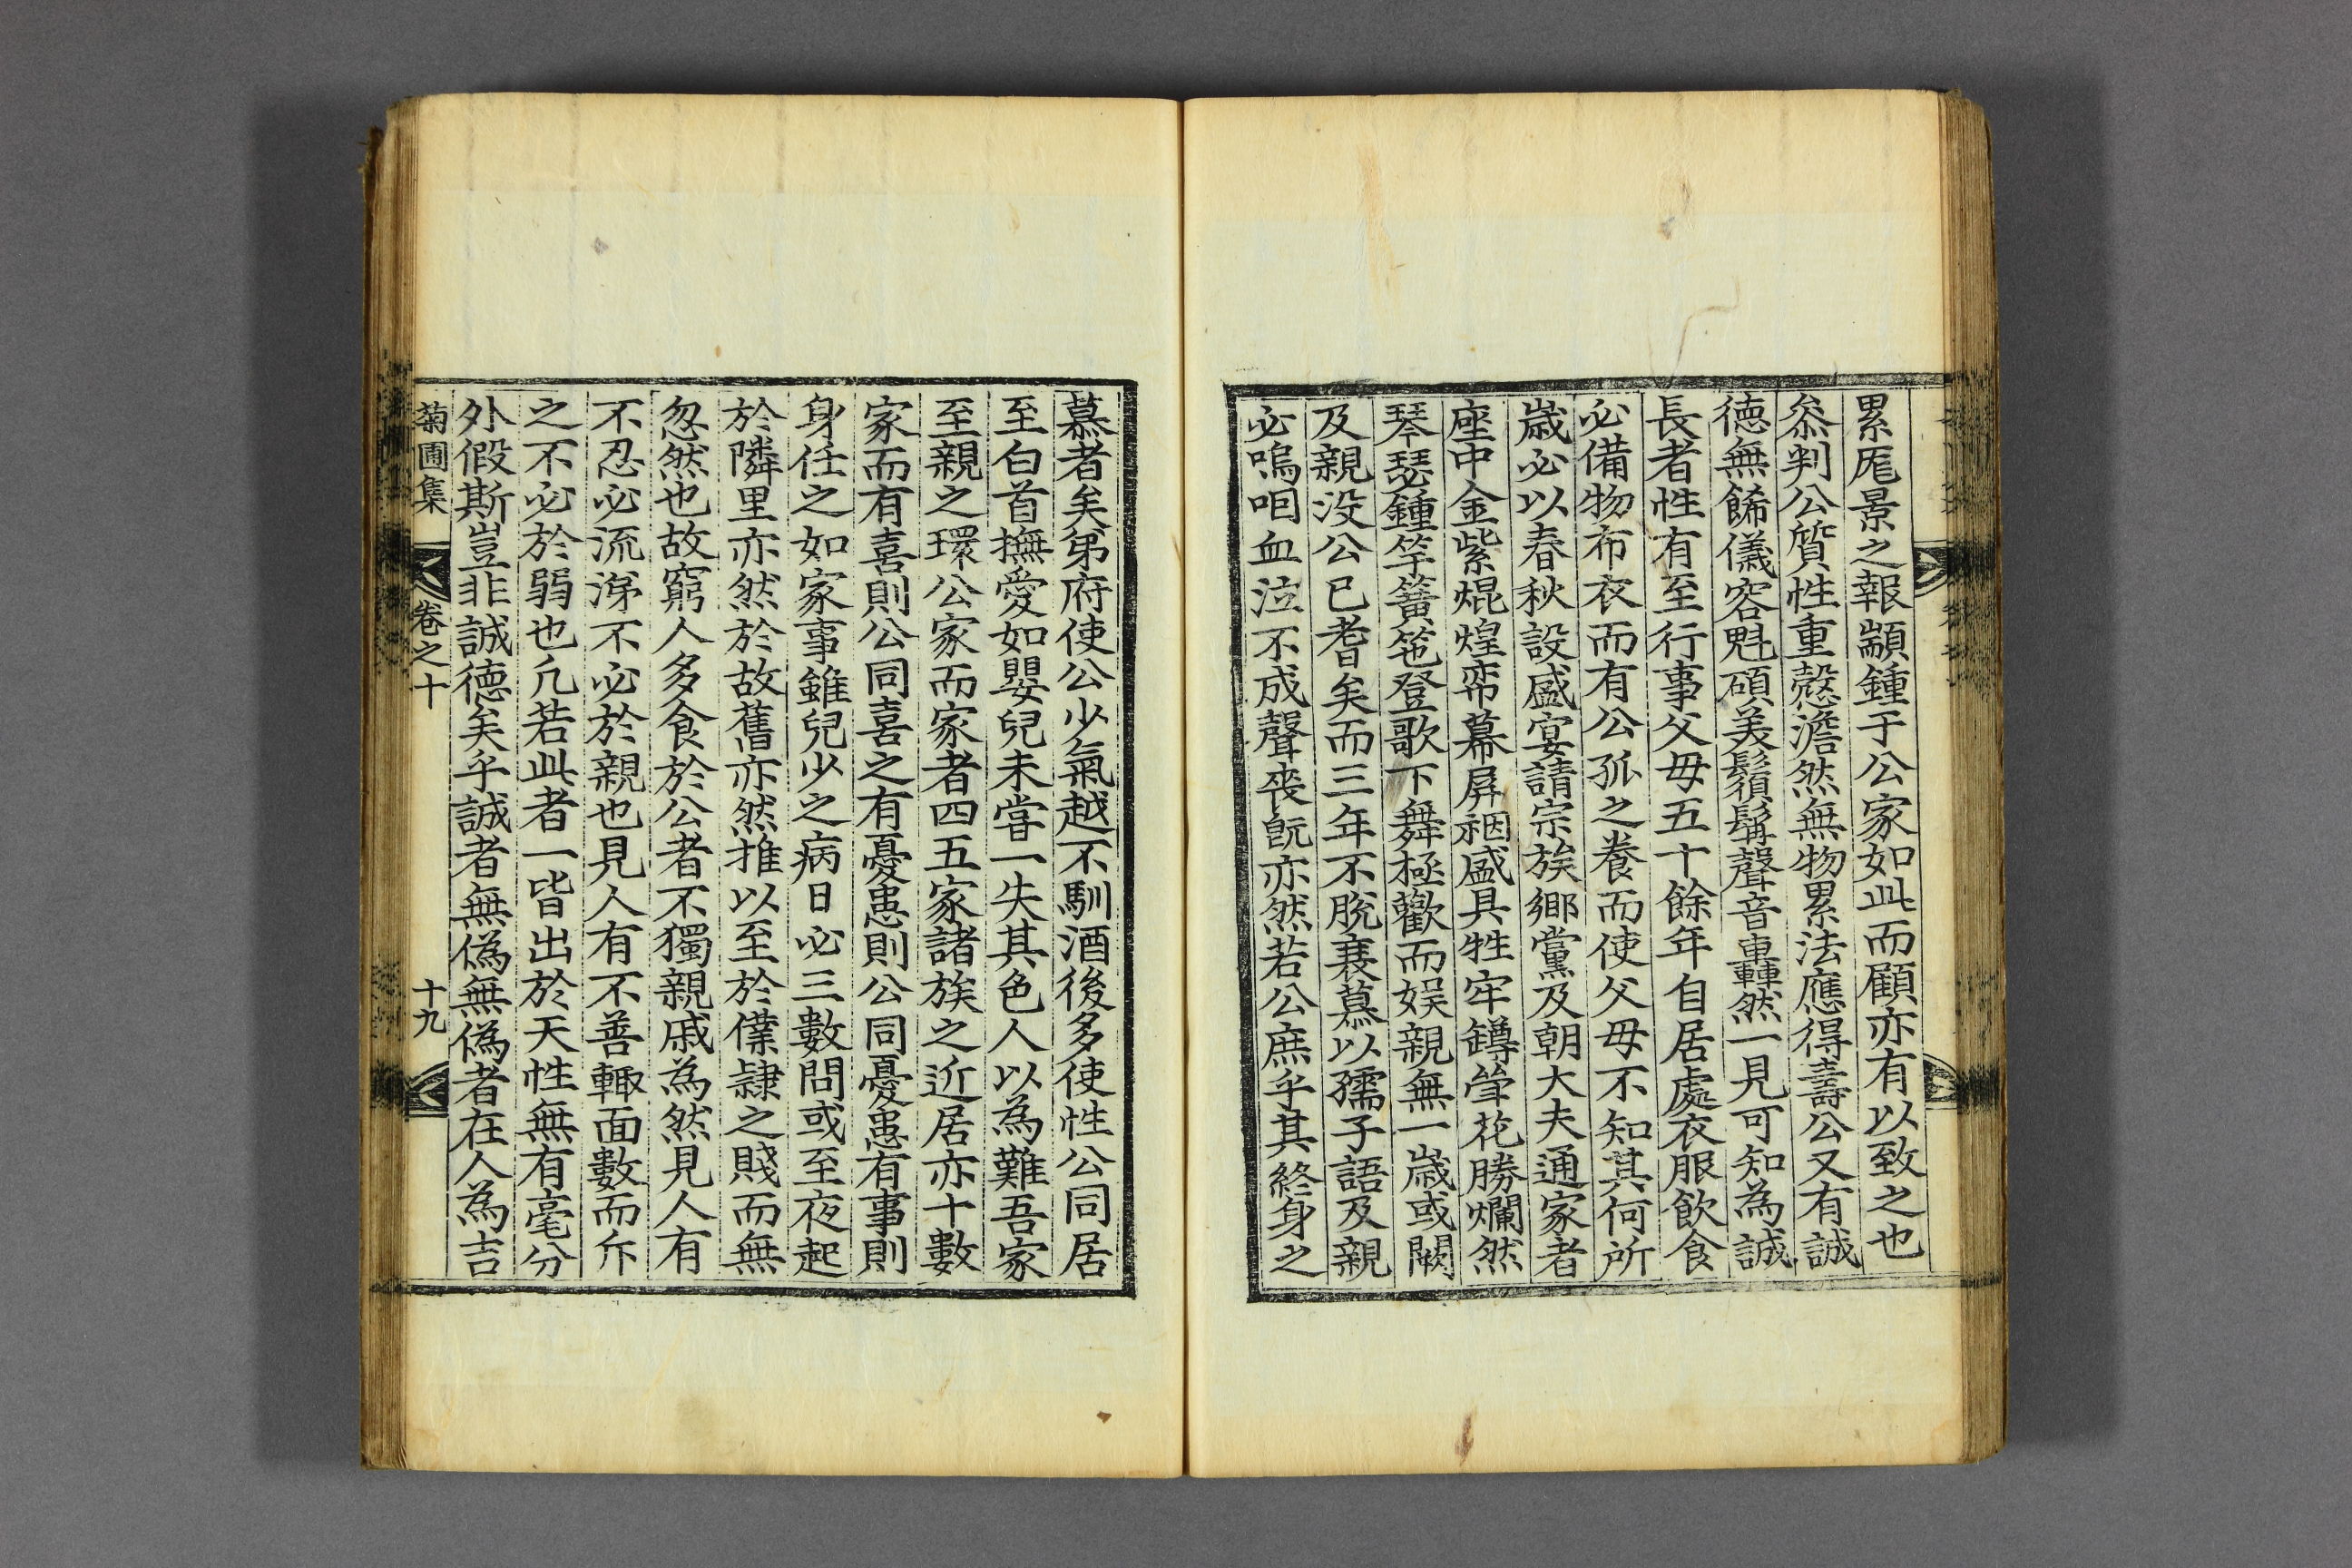 累厖景之報顓鍾于公家如此而顧亦有以致之也
叅判公質性重慤澹然無物累法應得壽公又有誠
德無餙儀容魁碩美鬚髯聲音轟然一見可知為誠
長者性有至行事父母五十餘年自居處衣服飲食
必備物布衣而有公孤之養而使父母不知其何所
歲必以春秋設盛宴請宗族鄉黨及朝大夫通家者
座中金紫焜煌帟幕屛裀盛具牲牢罇斝花勝爛然
琴瑟鍾竽簧笆登歌下舞極歡而娱親無一歲或闕
及親没公已耆矣而三年不脫衰慕以孺子語及親
必嗚咽血泣不成聲丧旣亦然若公庶乎其終身之
慕者矣弟府使公少氣越不馴酒後多使性公同居
至白首撫愛如嬰兒未甞一失其色人以為難吾家
至親之環公家而家者四五家諸族之近居亦十數
家而有喜則公同喜之有憂患則公同憂患有事則
身任之如家事雖兒少之病日必三數問或至夜起
於隣里亦然於故舊亦然推以至於僕隷之賤而無
忽然也故窮人多食於公者不獨親戚為然見人有
不忍必流涕不必於親也見人有不善輙面數而斥
之不必於弱也凡若此者一皆出於天性無有毫分
外假斯豈非誠德矣乎誠者無僞無僞者在人為吉
菊圃集 卷之十 十九